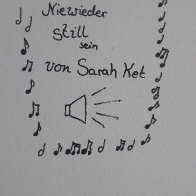 Niewieder
still
sein
von Sarah Ket